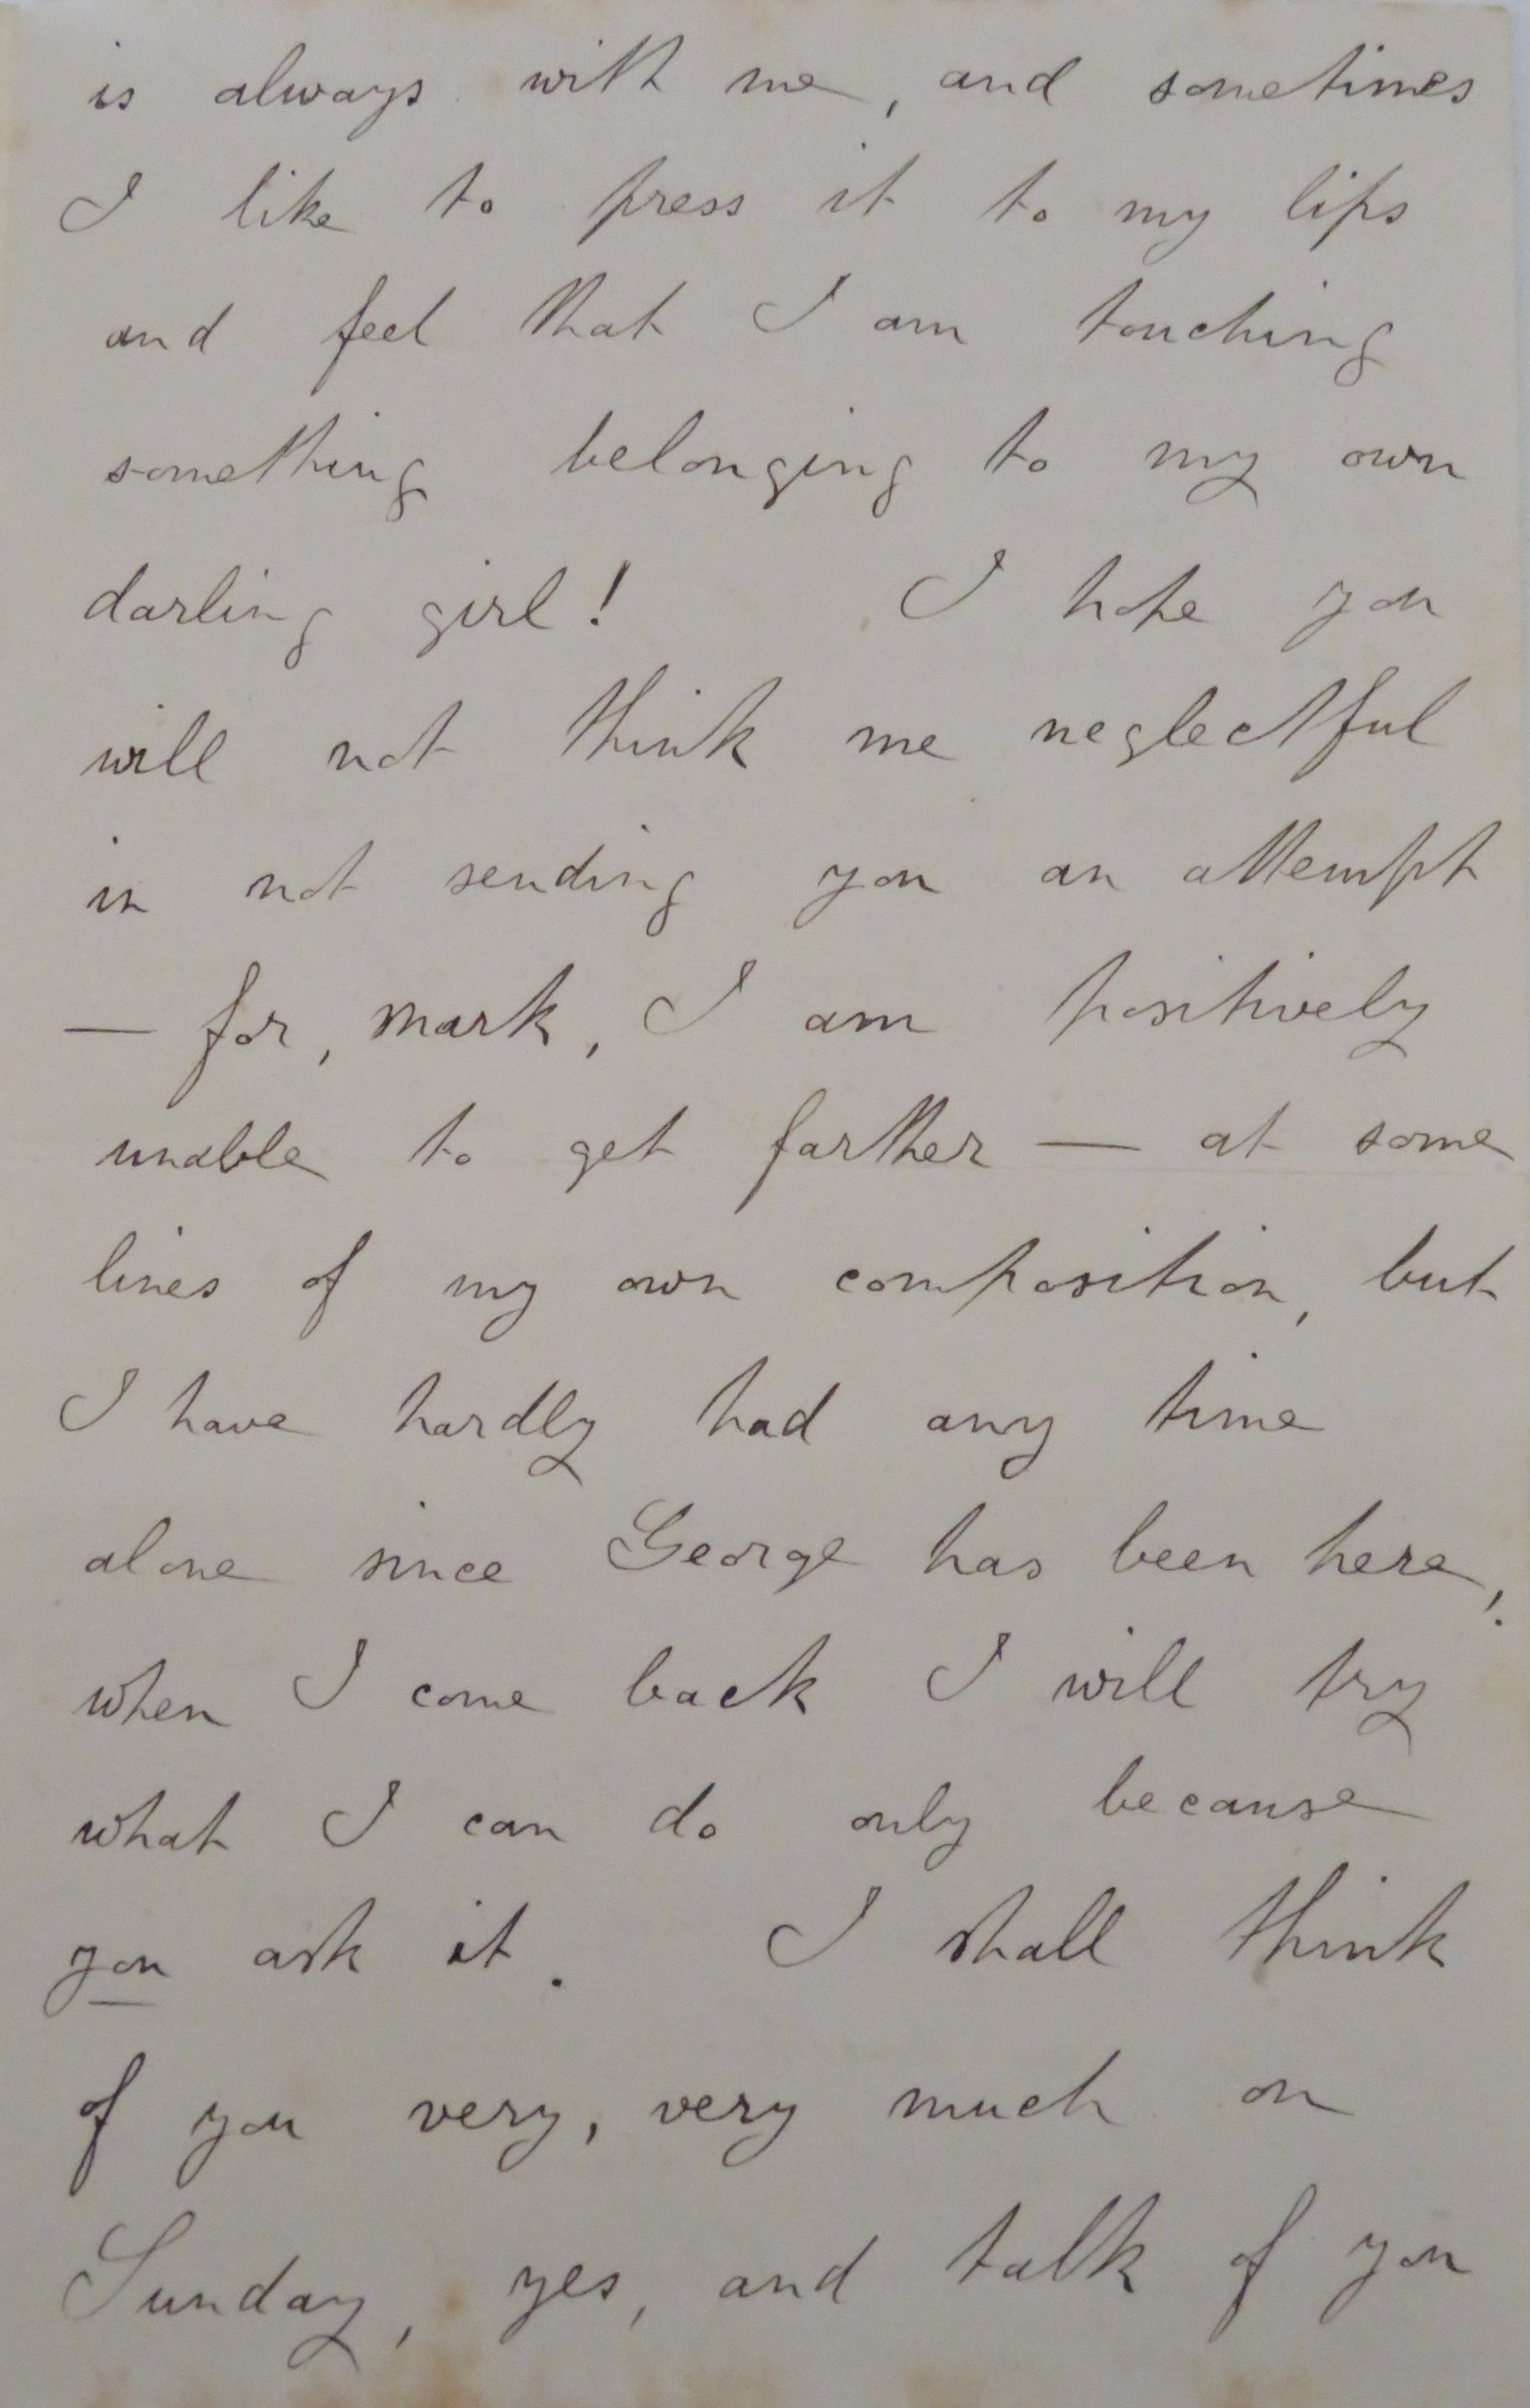 is always with me, and sometimes
I like to press it to my lips
and feel that I am touching
something belonging to my own
darling girl! I hope you
will not think me neglectful
in not sending you an attempt
— for, mark, I am positively
unable to get farther — at some
lines of my own composition, but
I have hardly had any time
alone since George has been here;
when I come back I will try
what I can do only because
you ask it. I shall think
of you very, very much on
Sunday, yes, and talk of you